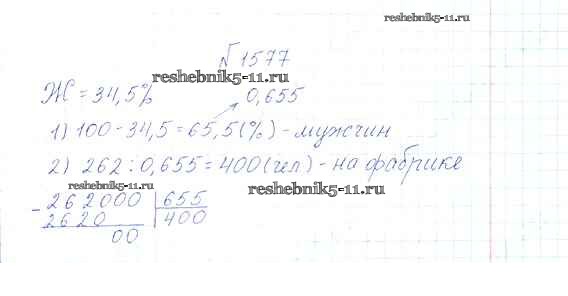 reshebnik5-11.ru
№1577
reshebnik5-11.ru
Ж = 34,5% 0,655
1) 100 - 34,5 = 65,5 (%) - мужчин
2) 262 : 0,655 = 400 (чел.) - на фабрике
reshebnik5-11.ru reshebnik5-11.ru
- 262000 | 655
2620 | 400
00